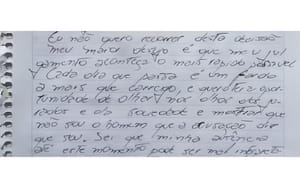 Eu não quero recorrer desta decisão
meu maior desejo é que meu jul
gamento aconteça o mais rápido possível
Cada dia que passa é um fardo
a mais que carrego, e quero ter a opor
tunidade de olhar nos olhos dos ju
rados e da sociedade e mostrar que
não sou o homem que a acusação diz
que sou. Sei que minha
até este momento pode ser mal